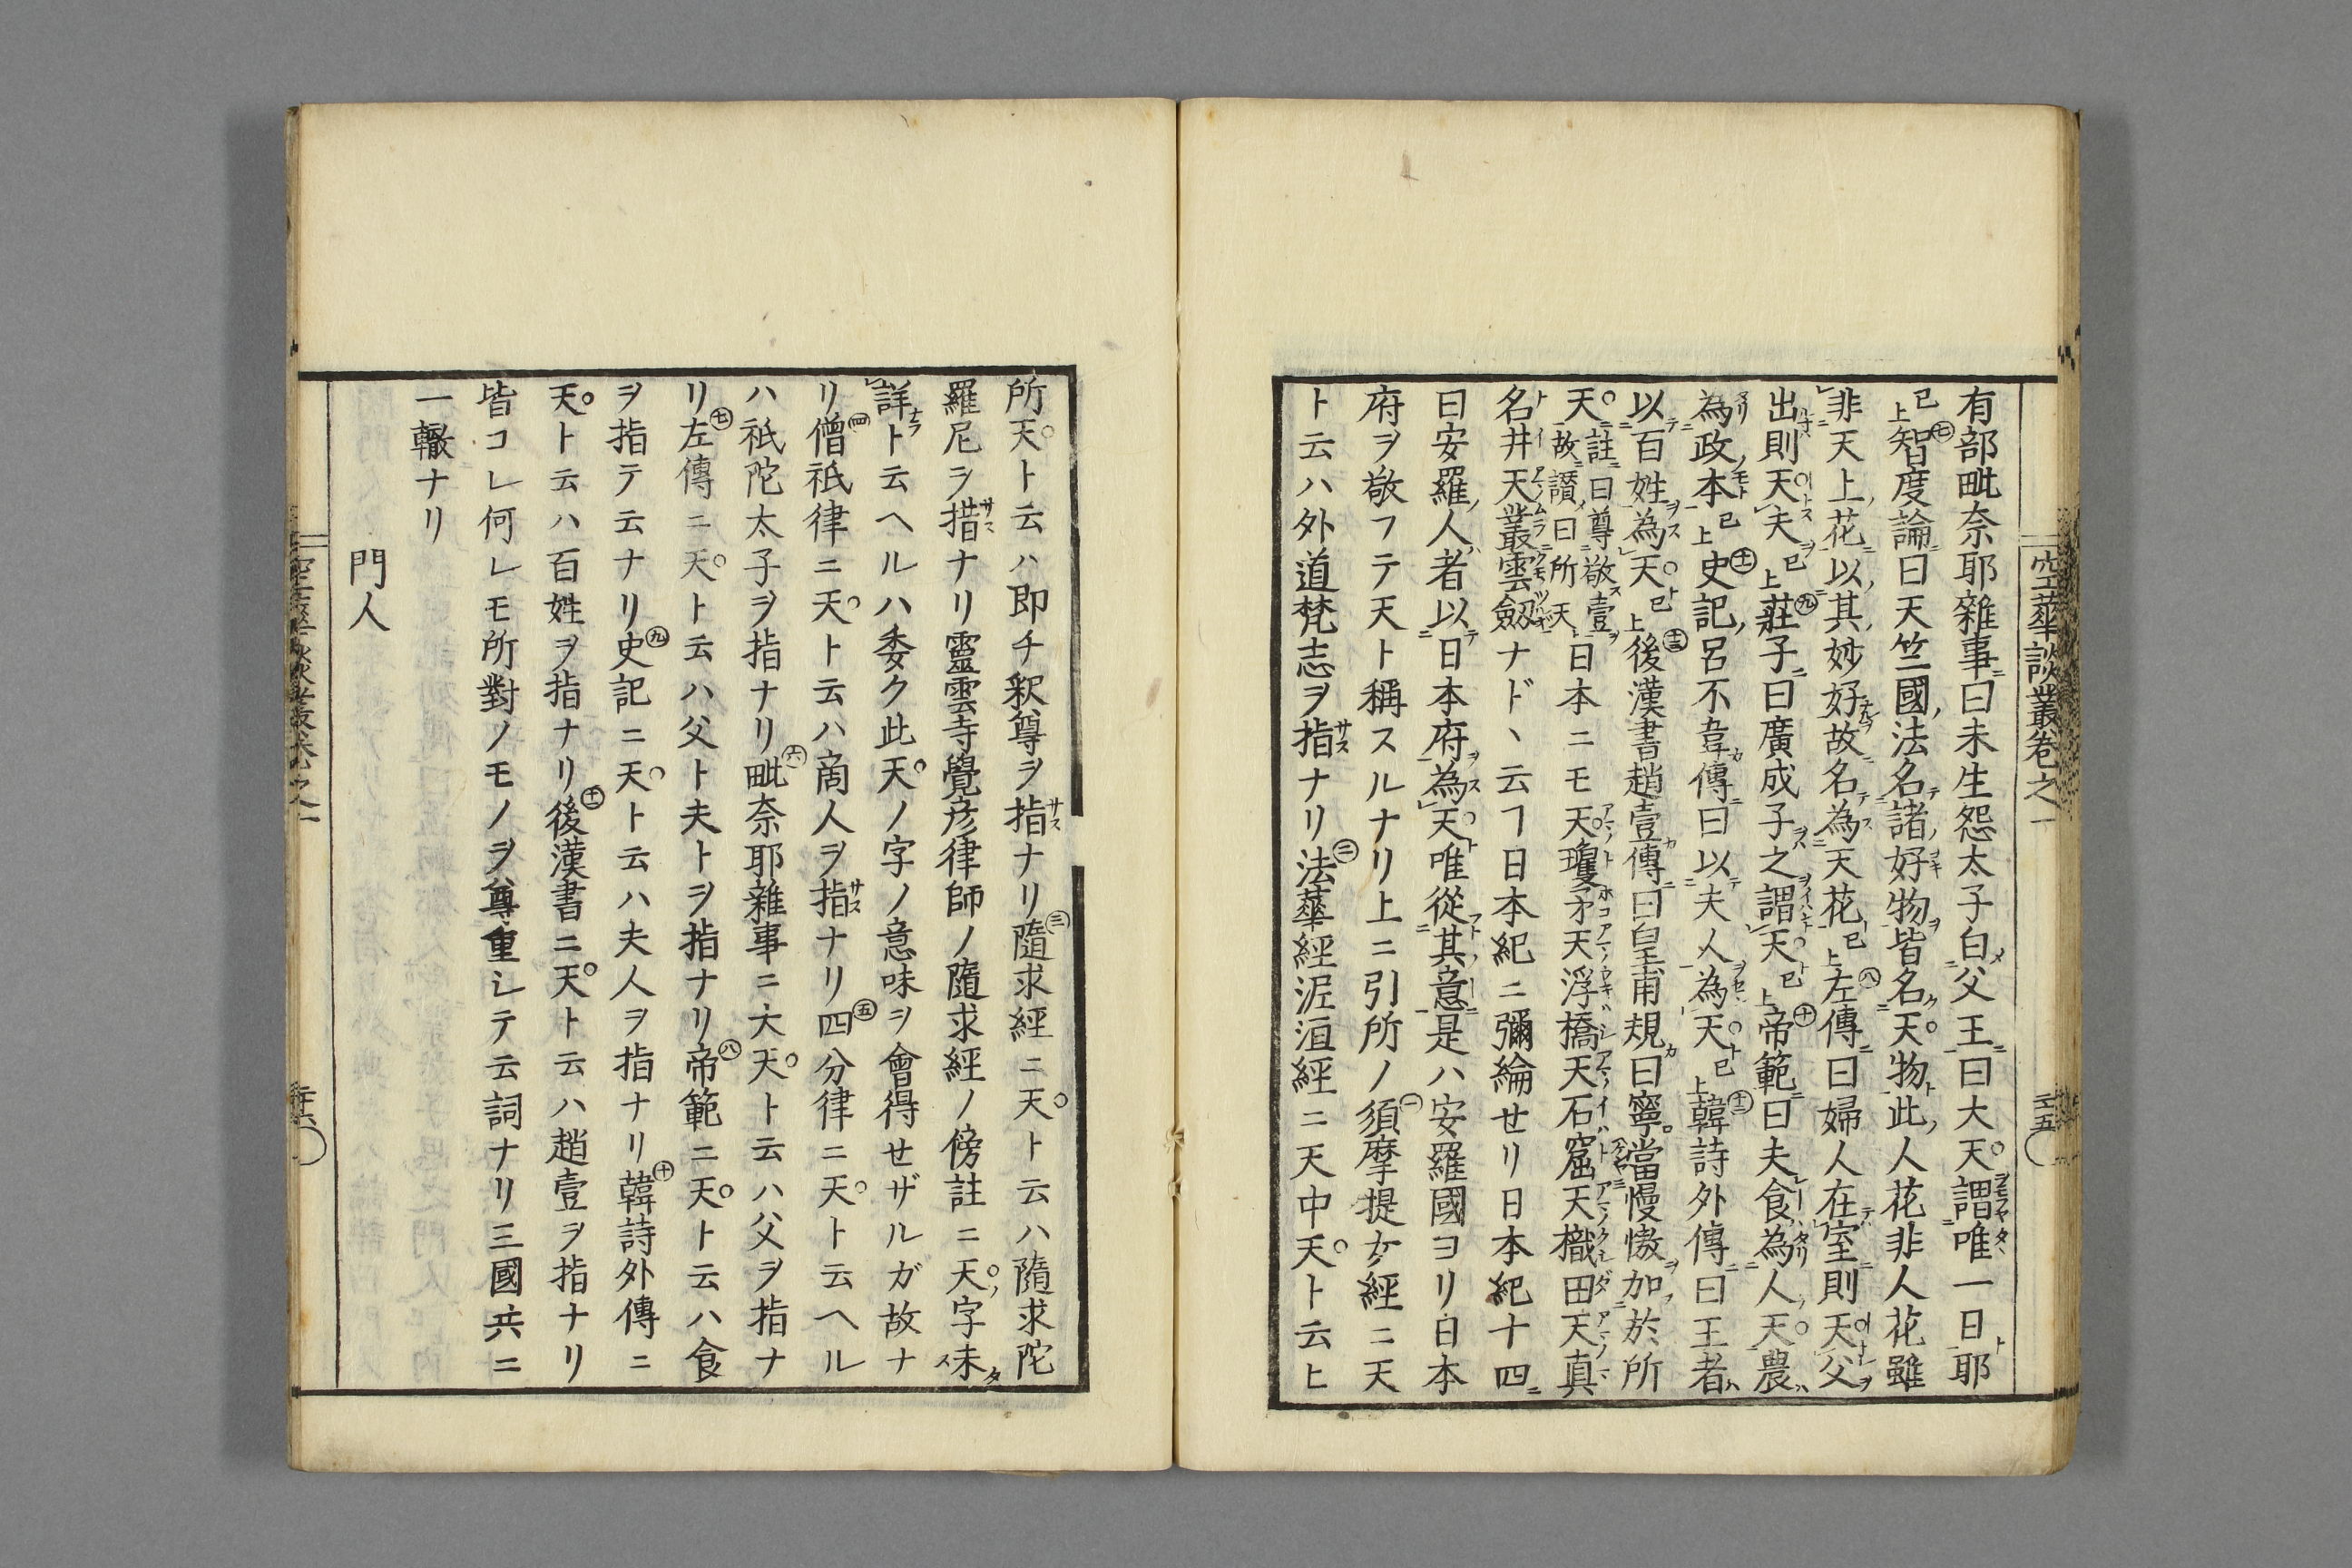 空華談叢卷之一
有部毗奈耶雜事曰未生怨太子白父王曰大天謂唯一日耶
已上智度論曰天竺國法名諸好物皆名天物此人花非人花雖
非天上花以其妙好故名為天花已上左傳曰婦人在室則天父
出則天夫已上莊子曰廣成子之謂天已上帝範曰夫食為人天農
為政本已上史記呂不韋傳曰以夫人為天已上韓詩外傳曰王者
以百姓為天已上後漢書趙壹傳曰皇甫規曰寧當慢慠加於所
天註曰尊敬壹故讃曰所天日本ニモ天瓊矛天浮橋天石窟天檝田天真
名井天叢雲劔ナド丶云フ日本紀ニ彌綸せリ日本紀十四
曰安羅人者以日本府為天唯從其意是ハ安羅國ヨリ日本
府ヲ敬フテ天ト稱スルナリ上ニ引所ノ須摩提女經ニ天
ト云ハ外道梵志ヲ指ナリ法華經涅洹經ニ天中天ト云ヒ
所天ト云ハ即チ釈尊ヲ指ナリ隨求經ニ天ト云ハ隨求陀
羅尼ヲ指ナリ靈雲寺覺彦律師ノ隨求經ノ傍註ニ天字未
詳ト云ヘルハ委ク此天ノ字ノ意味ヲ會得せザルガ故ナ
リ僧祇律ニ天ト云ハ商人ヲ指ナリ四分律ニ天ト云ヘル
ハ祇陀太子ヲ指ナリ毗奈耶雜事ニ大天ト云ハ父ヲ指ナ
リ左傳ニ天ト云ハ父ト夫トヲ指ナリ帝範ニ天ト云ハ食
ヲ指テ云ナリ史記ニ天ト云ハ夫人ヲ指ナリ韓詩外傳ニ
天ト云ハ百姓ヲ指ナリ後漢書ニ天ト云ハ趙壹ヲ指ナリ
皆コレ何レモ所對ノモノヲ尊重シテ云詞ナリ三國共ニ
一轍ナリ
門人